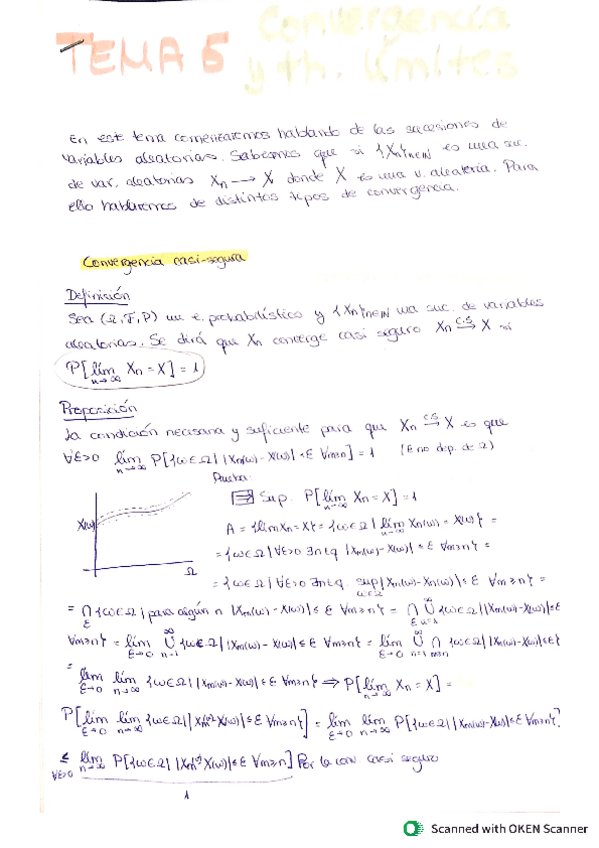 TEMA 5 Convergencia
y th. límites
En este tema comenzaremos hablando de las sucesiones de
variables aleatorias. Sabemos que si {Xn}n∈ℕ es una suc.
de var. aleatorias Xn → X donde X es una v. aleatoria. Para
ello hablaremos de distintos tipos de convergencia.
Convergencia casi-segura
Definición
Sea (Ω,F,P) un e. probabilístico y {Xn}n∈ℕ una suc. de variables
aleatorias. Se dirá que Xn converge casi seguro Xn →c.s X si
P[lím n→∞ Xn = X] = 1
Proposición
La condición necesaria y suficiente para que Xn →c.s X es que
∀ε>0 lím n→∞ P[{ω∈Ω | |Xm(ω) - X(ω)| ≤ ε ∀m≥n}] = 1 (ε no dep. de Ω)
Prueba:
⇒ Sup. P[lím n→∞ Xn = X] = 1
X(ω)
A = {lím Xn = X} = {ω∈Ω | lím n→∞ Xn(ω) = X(ω)} =
= {ω∈Ω | ∀ε>0 ∃n tq |Xm(ω) - X(ω)| ≤ ε ∀m≥n} =
Ω
= {ω∈Ω | ∀ε>0 ∃n tq. sup ω∈Ω |Xm(ω) - Xn(ω)| ≤ ε ∀m≥n} =
= ∩ ε {ω∈Ω | para algún n |Xm(ω) - X(ω)| ≤ ε ∀m≥n} = ∩ ε ∪ n=1 ∞ {ω∈Ω | |Xm(ω) - X(ω)| ≤ ε
∀m≥n} = lím ε→0 ∪ n=1 ∞ {ω∈Ω | |Xm(ω) - X(ω)| ≤ ε ∀m≥n} = lím ε→0 ∪ n=1 ∞ ∩ m≥n {ω∈Ω | |Xm(ω) - X(ω)| ≤ ε}
= lím ε→0 lím n→∞ {ω∈Ω | |Xm(ω) - X(ω)| ≤ ε ∀m≥n} ⇒ P[lím n→∞ Xn = X] =
P[lím ε→0 lím n→∞ {ω∈Ω | |Xm(ω) - X(ω)| ≤ ε ∀m≥n}] = lím ε→0 lím n→∞ P[{ω∈Ω | |Xm(ω) - X(ω)| ≤ ε ∀m≥n}]
≤ ∀ε>0 lím n→∞ P[{ω∈Ω | |Xm(ω) - X(ω)| ≤ ε ∀m≥n}] Por la conv. casi seguro
1
Scanned with OKEN Scanner